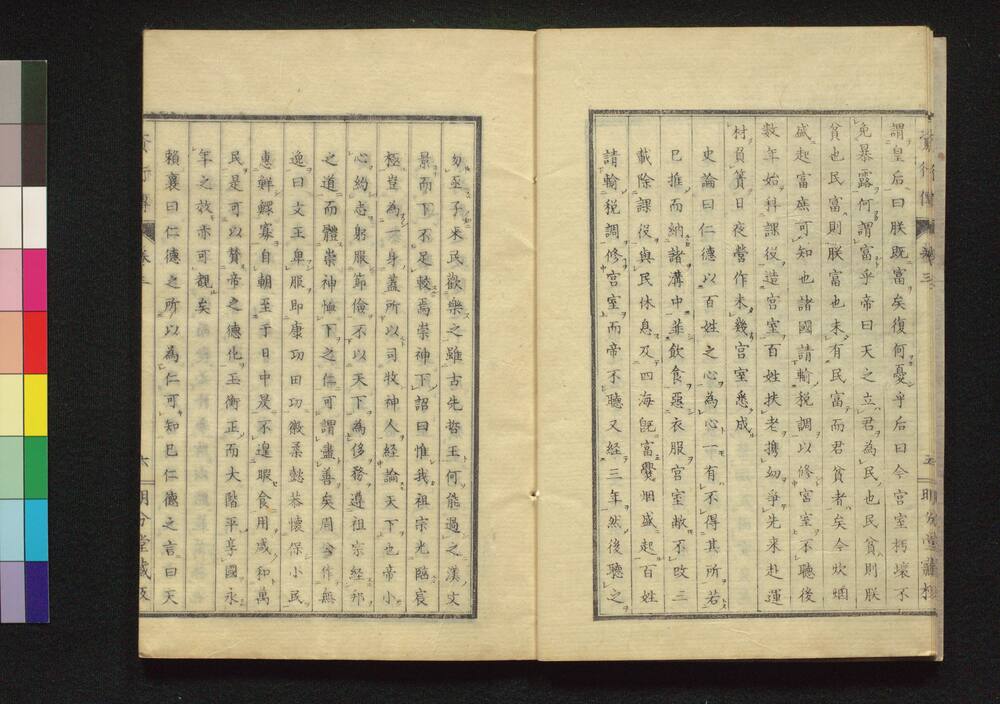 謂皇后曰朕既富矣復何憂乎后曰今宮室朽壞不
免暴露何謂富乎帝曰天之立君為民也民貧則朕
貧也民富則朕富也未有民富而君貧者矣今炊烟
盛起富庶可知也諸國請輸税調以修宮室不聽後
数年始科課役造宮室百姓扶老攜幼爭先来赴運
材負簣日夜營作未幾宮室悉成
史論曰仁德以百姓之心為心一有不得其所若
巳推而納諸溝中菲飲食惡衣服宮室敝不改三
載除課役與民休息及四海既富爨烟盛起百姓
請輸税調修宮室而帝不聽又経三年然後聽之
五
明分堂藏板
勿亟子来民歓樂之雖古先哲王何能過之漢文
景而下不足較焉崇神下詔曰惟我祖宗光臨宸
極豈為一身蓋所以司牧神人経論天下也帝小
心約志躬服節儉不以天下為侈務遵祖宗経邦
之道而體崇神恤下之仁可謂盡善矣周公作無
逸曰文王卑服即康功田功徽柔懿恭懷保小民
惠鮮鰥寡自朝至于日中昃不遑暇食用咸和萬
民是可以賛帝之德化玉衡正而大階平享國永
年之效亦可覩矣
賴襄曰仁德之所以為仁可知巳仁德之言曰天
六
明分堂藏板